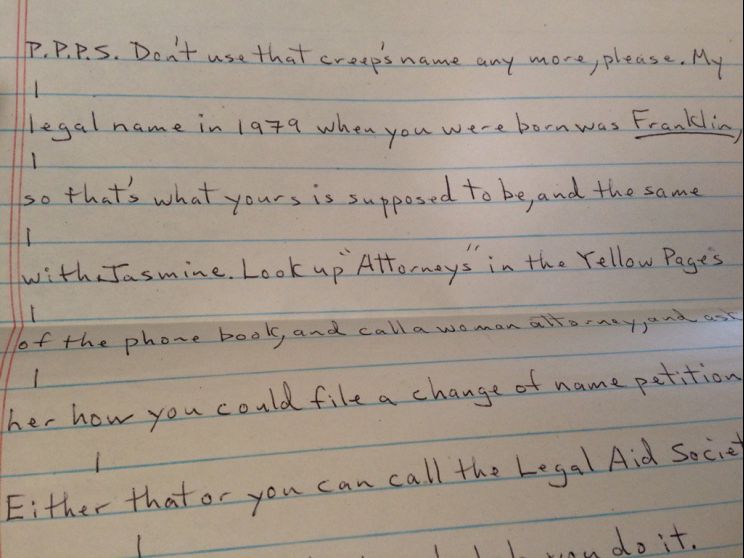 P.P.P.S. Don't use that creep's name any more, please. My
legal name in 1979 when you were born was Franklin,
so that's what yours is supposed to be, and the same
with Jasmine. Look up "Attorneys" in the Yellow Pages
of the phone book, and call a woman attorney, and ask
her how you could file a change of name petition
Either that or you can call the Legal Aid Societ
you do it.